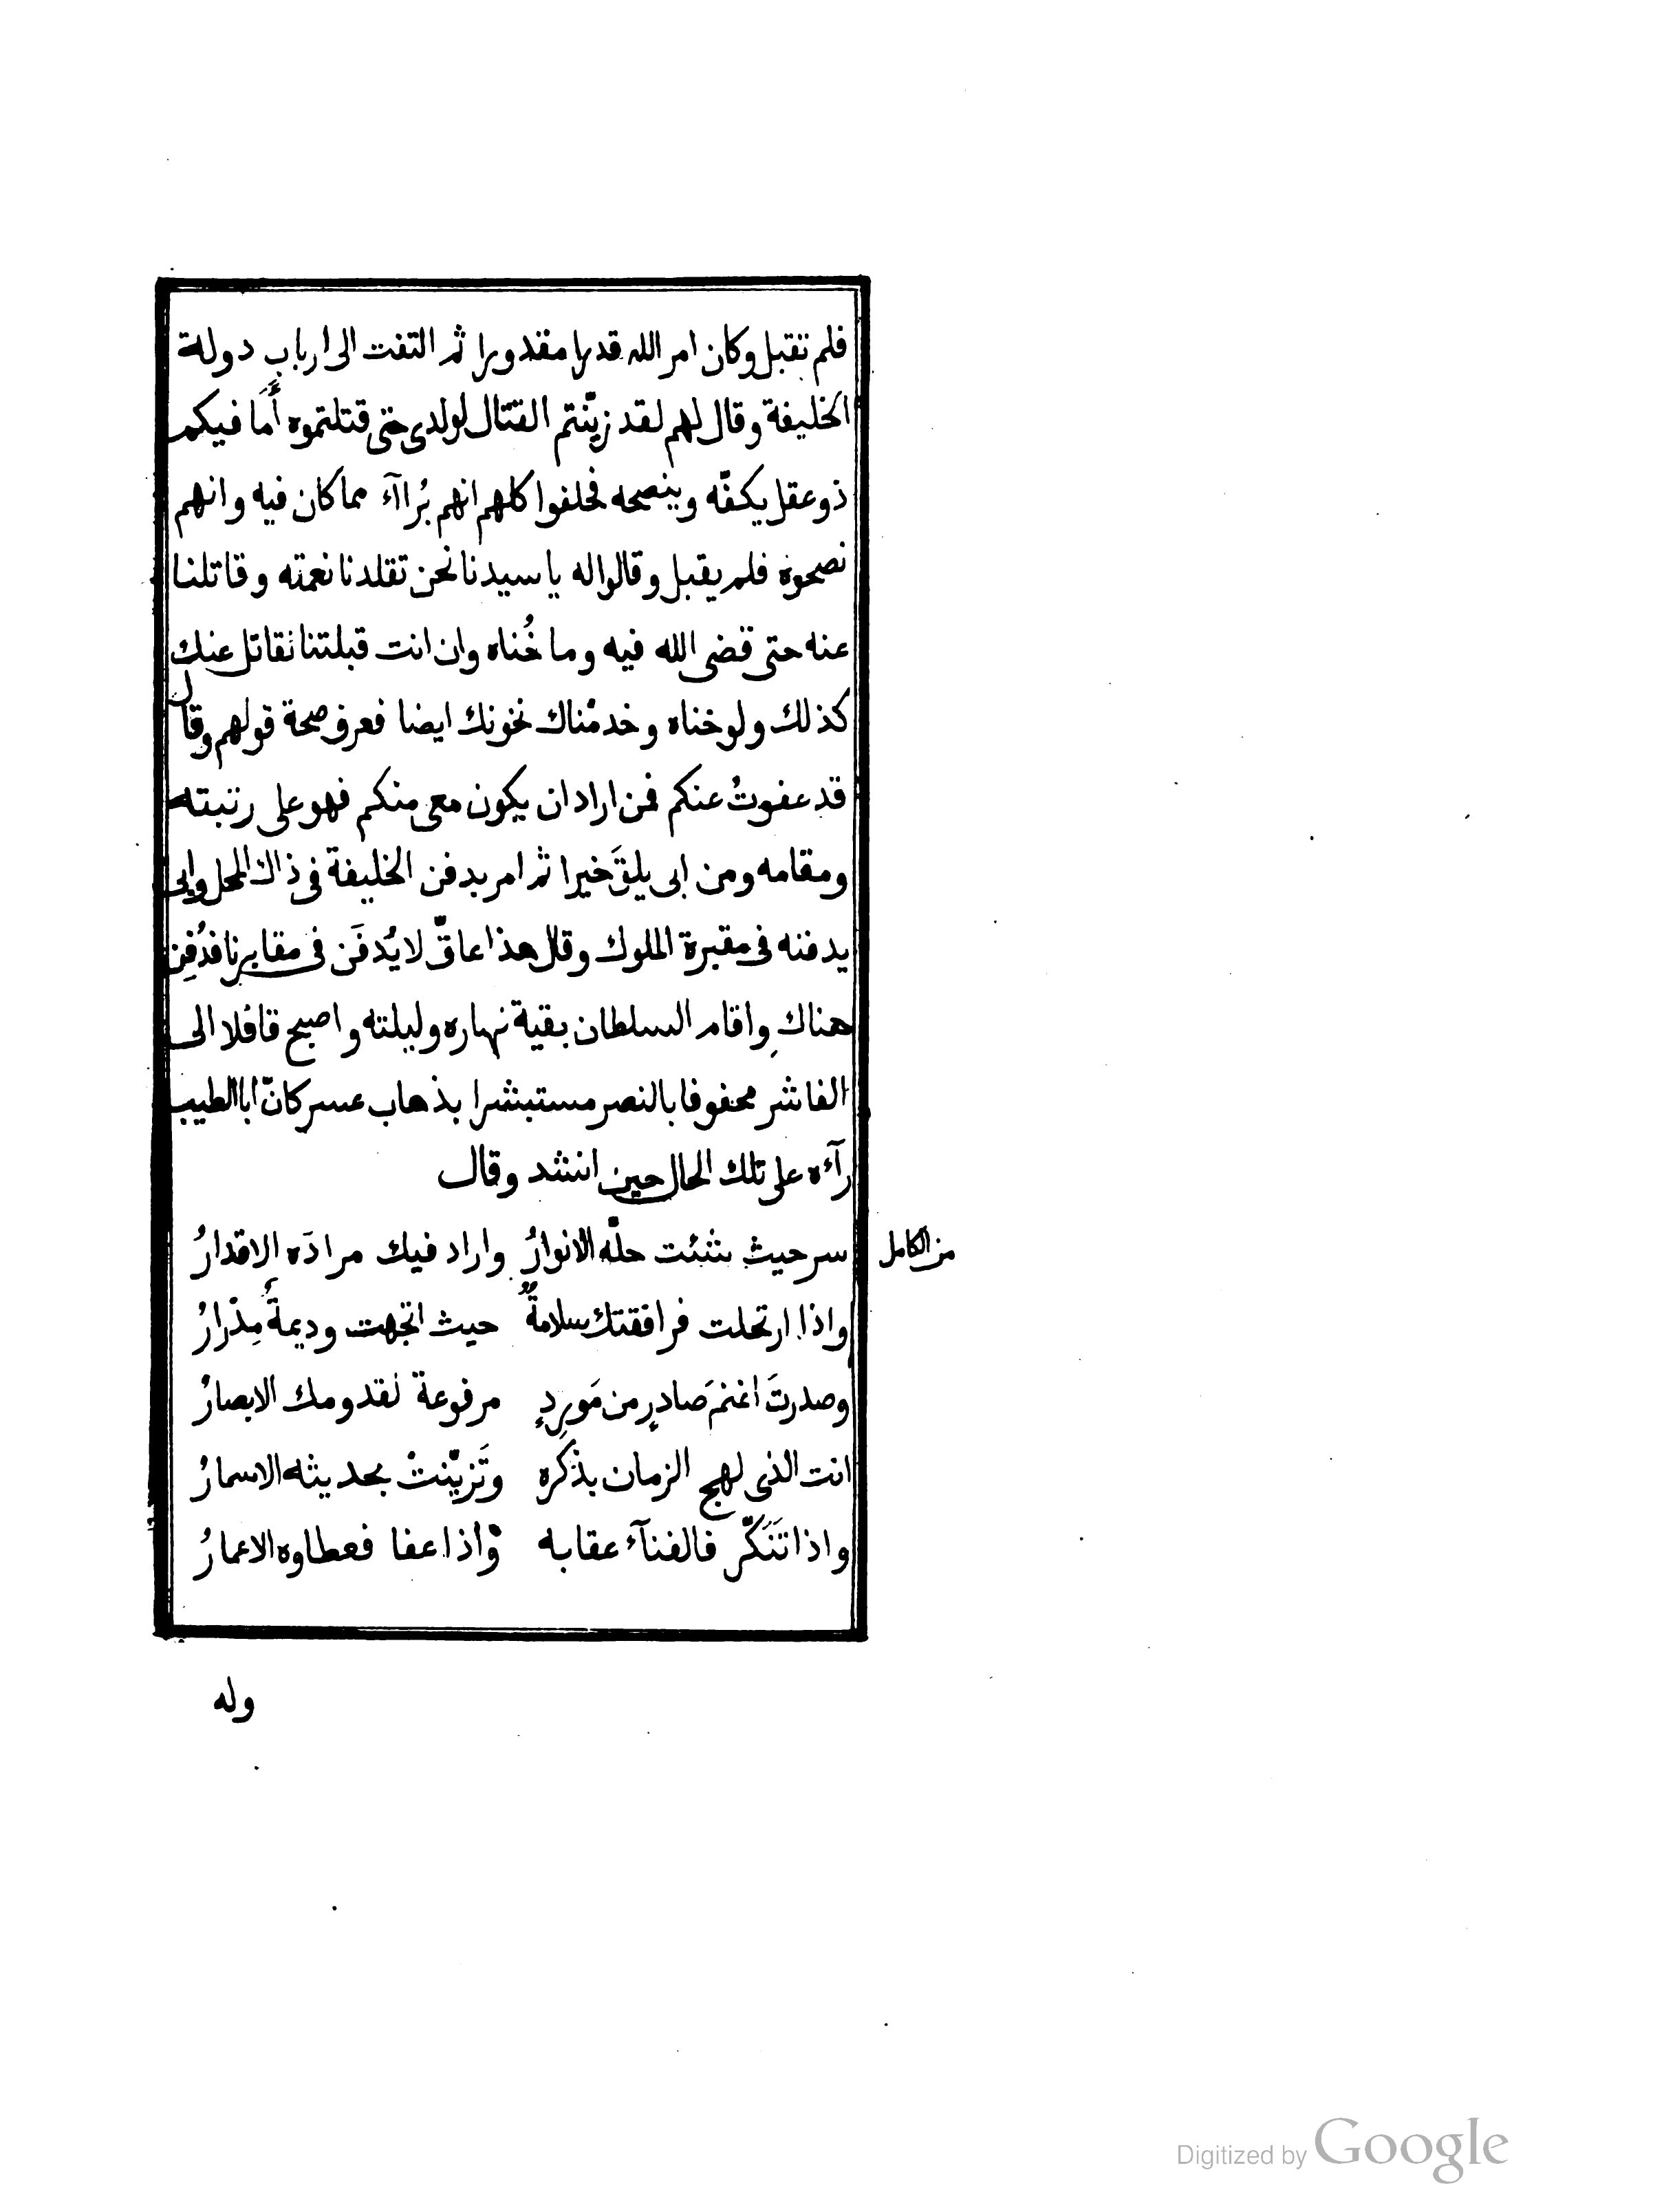 فلم تقبل وكان امر الله قدرا مقدورا ثم التفت الى ارباب دولة
الخليفة وقال لهم لقد زيّنتم القتال لولدى حتى قتلتموه أَمَا فيكم
ذو عقل يكفّه وينصحه فحلفوا كلهم انهم بُراآء مما كان فيه وانهم
نصحوه فلم يقبل وقالوا له يا سيدنا نحن تقلدنا نعمته وقاتلنا
عنه حتى قضى الله فيه وما خُناه وان انت قبلتنا نقاتل عنك
كذلك ولو خناه وخدمْناك نخونك ايضا فعرف صحة قولهم وقال
قد عفوتُ عنكم فمن اراد ان يكون معى منكم فهو على رتبته
ومقامه ومن ابى يلقَ خيرا ثم امر بدفن الخليفة فى ذاك المحل وابى
يدفنه فى مقبرة الملوك وقال هذا عاقّ لا يُدفَن فى مقابرنا فدُفِن
هناك واقام السلطان بقية نهاره وليلته واصبح قافلا الى
الفاشر محفوفا بالنصر مستبشرا بذهاب عسر كانّ ابا الطيب
رآءه على تلك الحال حين انشد وقال
من الكامل
سر حيث شئت حلّه الانوارُ واراد فيك مرادَه الاقدارُ
واذا ارتحلت فرافقتك سلامةٌ حيث اتجهت وديمةٌ مِدْرارُ
وصدرتَ اغنم صادرٍ من مَورِدٍ مرفوعة لقدومك الابصارُ
انت الذى لهج الزمان بذكره وتَزيّنتْ بحديثه الاسمارُ
واذا تَنَكّر فالفنآء عقابه واذا عفا فعطاوه الاعمارُ
وله
Digitized by Google